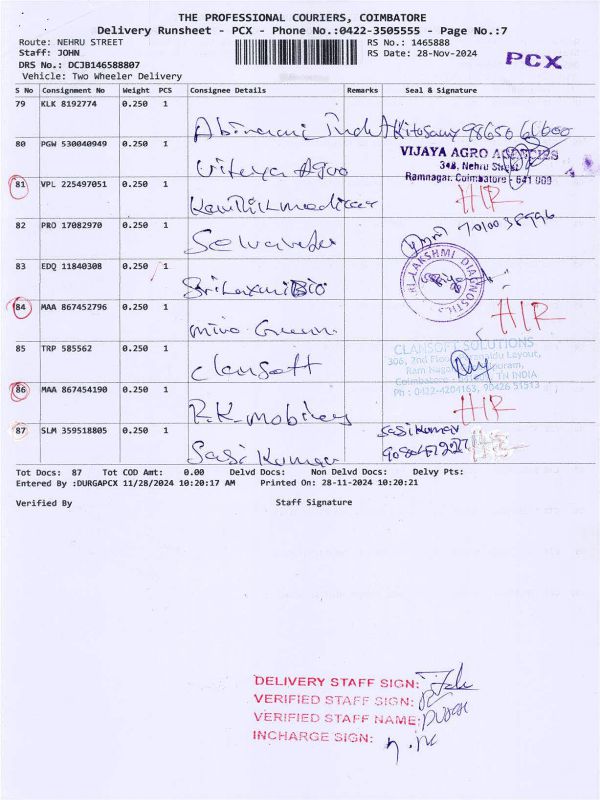 THE PROFESSIONAL COURIERS, COIMBATORE
Delivery Runsheet - PCX - Phone No.:0422-3505555 - Page No.:7
Route: NEHRU STREET RS No.: 1465888
Staff: JOHN RS Date: 28-Nov-2024
PCX
DRS No.: DCJB146588807
Vehicle: Two Wheeler Delivery
S No Consignment No Weight PCS Consignee Details Remarks Seal & Signature
79 KLK 8192774 0.250 1
Abirami Kitosamy 98650 61600
80 PGW 530040949 0.250 1
Vijaya Agro
VIJAYA AGRO AGENCIES
348, Nehru Street
Ramnagar, Coimbatore - 641 009
81 VPL 225497051 0.250 1
HIR
82 PRO 17082970 0.250 1
Selvarides
7010038996
83 EDQ 11840308 0.250 1
Sri Laxmi Bio
SRI LAKSHMI DIAGNOSTICS
84 MAA 867452796 0.250 1
Miro Green
HIR
85 TRP 585562 0.250 1
Clansoft
CLANSOFT SOLUTIONS
306, 2nd Floor Layout,
Ram Nagar
Coimbatore TN INDIA
Ph : 0422-4204163, 90426 51513
86 MAA 867454190 0.250 1
R.K. mobiles
HIR
87 SLM 359518805 0.250 1
Sasi Kumar
Sasi Kumar
Tot Docs: 87 Tot COD Amt: 0.00 Delvd Docs: Non Delvd Docs: Delvy Pts:
Entered By :DURGAPCX 11/28/2024 10:20:17 AM Printed On: 28-11-2024 10:20:21
Verified By Staff Signature
DELIVERY STAFF SIGN:
VERIFIED STAFF SIGN:
VERIFIED STAFF NAME:
INCHARGE SIGN: